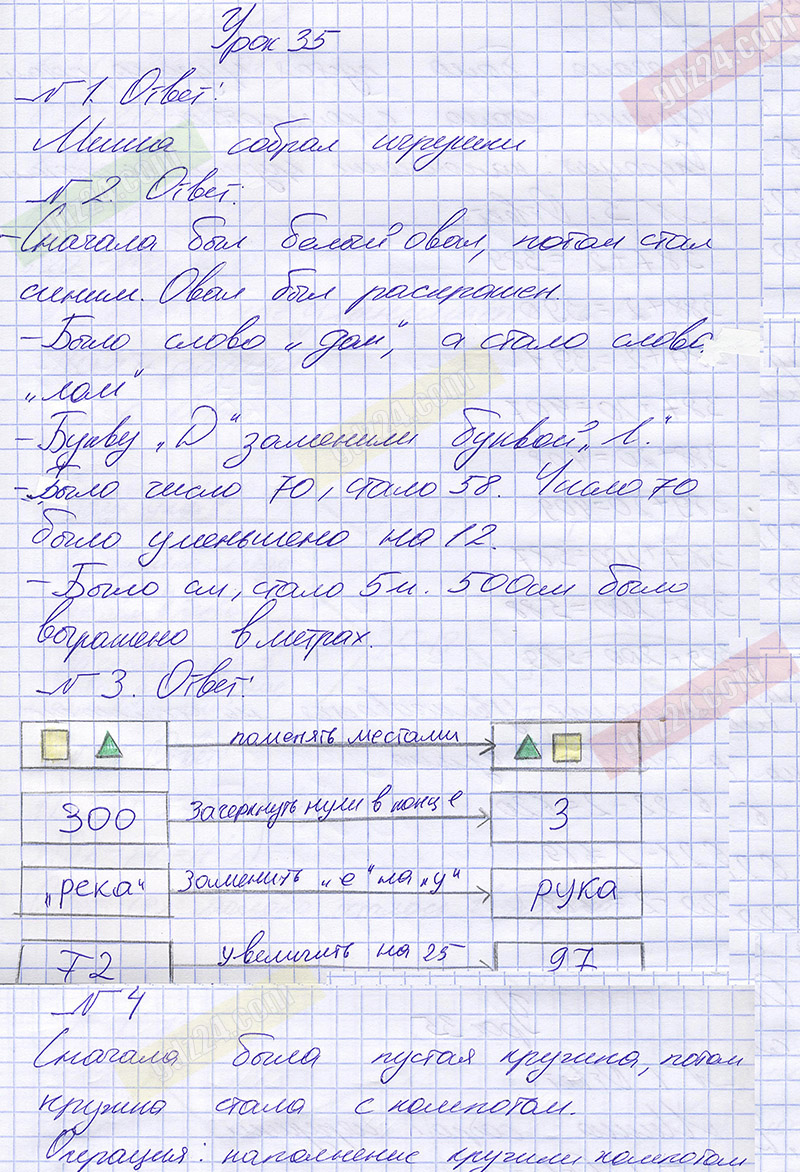 Урок 35
№ 1. Ответ:
Миша собрал игрушки
№ 2. Ответ:
- Сначала был белый овал, потом стал
синим. Овал был раскрашен.
- Было слово „дом“, а стало слово
„лом“
- Букву „D“ заменили буквой „л.“
- Было число 70, стало 58. Число 70
было уменьшено на 12.
- Было см, стало 5 м. 500 см было
выражено в метрах.
№ 3. Ответ:
поменять местами
300 Зачеркнуть нули в конце 3
„река“ Заменить „е“ на „у“ рука
72 увеличить на 25 97
№ 4
Сначала была пустая кружка, потом
кружка стала с компотом.
Операция: наполнение кружки компотом
gdz24.com
gdz24.com
gdz24.com
gdz24.com
gdz24.com